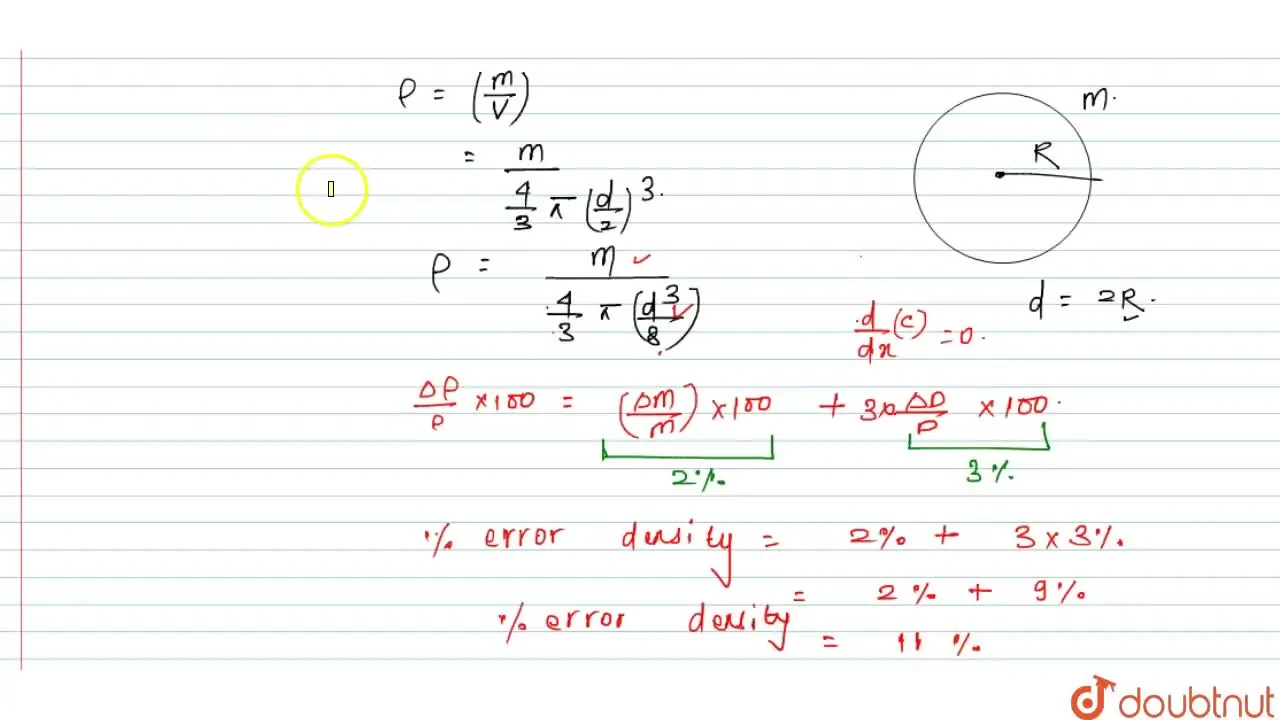 ρ = (m/V)
m.
R
= m / 4/3 π (d/2)^3.
ρ = m / 4/3 π (d^3/8)
d = 2R.
d/dx (c) = 0.
Δρ/ρ × 100 = (Δm/m) × 100 + 3× ΔD/D × 100.
2%.
3%.
% error density = 2% + 3 × 3%.
= 2% + 9%.
% error density = 11 %.
doubtnut